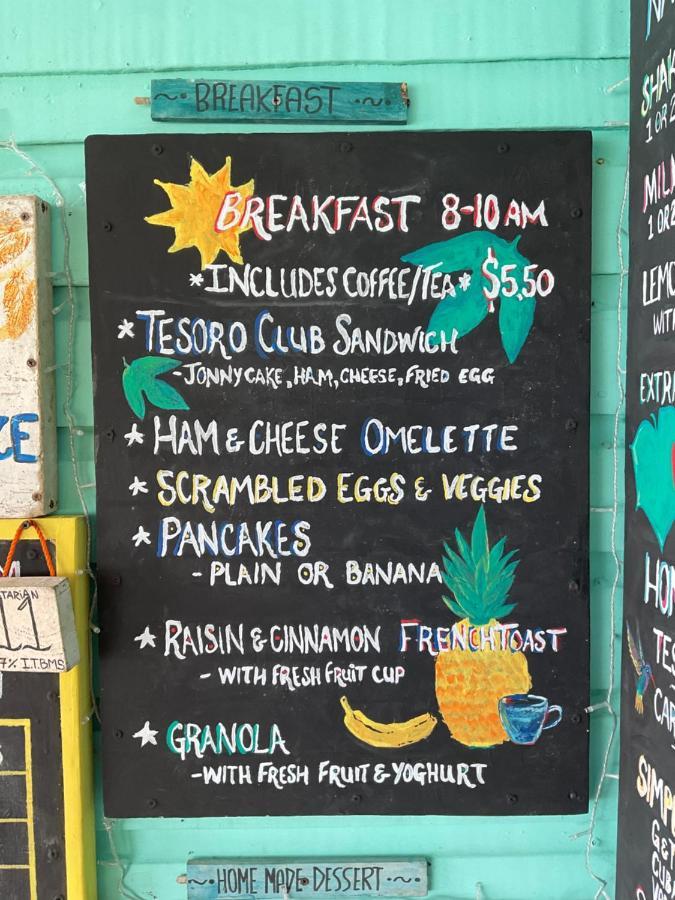 ~ BREAKFAST ~
BREAKFAST 8-10 AM
*INCLUDES COFFEE/TEA* $5,50
* TESORO CLUB SANDWICH
-JONNYCAKE, HAM, CHEESE, FRIED EGG
* HAM & CHEESE OMELETTE
* SCRAMBLED EGGS & VEGGIES
* PANCAKES
- PLAIN OR BANANA
* RAISIN & CINNAMON FRENCHTOAST
- WITH FRESH FRUIT CUP
* GRANOLA
-WITH FRESH FRUIT & YOGHURT
~ HOME MADE DESSERT ~
11
7% I.T.B.M.S
1 OR
1 OR
WITH